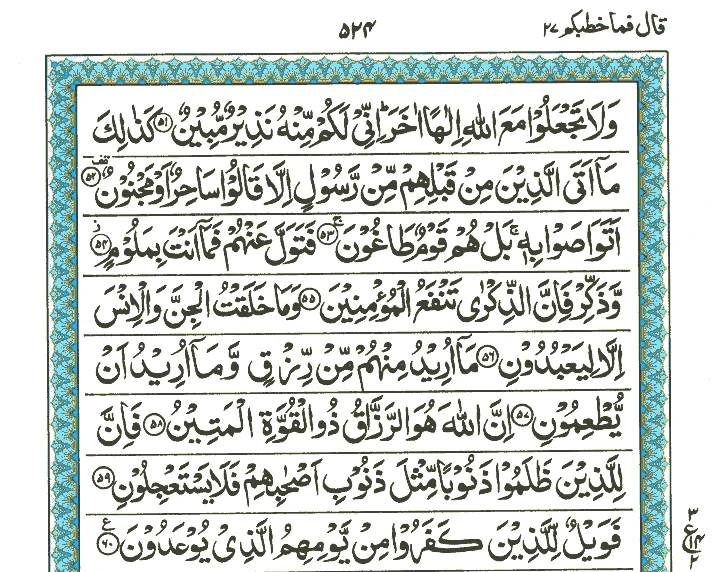 قال فما خطبكم ٢٧
٥٢٤
وَلَا تَجْعَلُوْا مَعَ اللّٰهِ اِلٰهًا اٰخَرَ ؕ اِنِّيْ لَكُمْ مِّنْهُ نَذِيْرٌ مُّبِيْنٌ ۚ﴿۵۱﴾ كَذٰلِكَ
مَاۤ اَتَى الَّذِيْنَ مِنْ قَبْلِهِمْ مِّنْ رَّسُوْلٍ اِلَّا قَالُوْا سَاحِرٌ اَوْ مَجْنُوْنٌ قف ﴿۵۲﴾
اَتَوَاصَوْا بِهٖ ۚ بَلْ هُمْ قَوْمٌ طَاغُوْنَ ۚ﴿۵۳﴾ فَتَوَلَّ عَنْهُمْ فَمَاۤ اَنْتَ بِمَلُوْمٍ ز ﴿۵۴﴾
وَّذَكِّرْ فَاِنَّ الذِّكْرٰى تَنْفَعُ الْمُؤْمِنِيْنَ ﴿۵۵﴾ وَمَا خَلَقْتُ الْجِنَّ وَالْاِنْسَ
اِلَّا لِيَعْبُدُوْنِ ﴿۵۶﴾ مَاۤ اُرِيْدُ مِنْهُمْ مِّنْ رِّزْقٍ وَّمَاۤ اُرِيْدُ اَنْ
يُّطْعِمُوْنِ ﴿۵۷﴾ اِنَّ اللّٰهَ هُوَ الرَّزَّاقُ ذُو الْقُوَّةِ الْمَتِيْنُ ﴿۵۸﴾ فَاِنَّ
لِلَّذِيْنَ ظَلَمُوْا ذَنُوْبًا مِّثْلَ ذَنُوْبِ اَصْحٰبِهِمْ فَلَا يَسْتَعْجِلُوْنِ ﴿۵۹﴾
فَوَيْلٌ لِّلَّذِيْنَ كَفَرُوْا مِنْ يَّوْمِهِمُ الَّذِيْ يُوْعَدُوْنَ ع ﴿۶۰﴾
٣
ع ١٤
٢